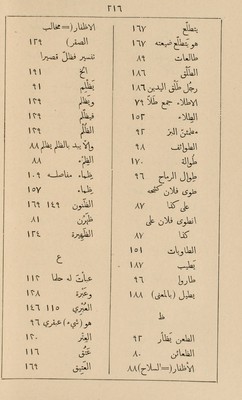 ٢١٦
يتطلّع ١٦٧
هو يتطلّع ضيعته ١٦٧
طالعات ٨٩
الطَّلَق ١٨٦
رجُل طلْق اليدين ١٨٦
الاطلاء جمع طَلًا ٧٩
الطِلاء ١٥٢
مطمئنّ البز ٩٢
الطوائف ٩٨
طُوالة ١٧٠
طوال الرماح ٩٦
طوى فلان كشحه
على كذا ٨٧
انطوى فلان على
كذا ٨٧
الطاويات ١٥١
يُطيب ١٨٧
طاروا ٩٦
يطبل (بالمعنى) ١٨٨
ظ
الطعن يظأر ٩٢
الظعائن ٨٠
الأظفار (= السلاح) ٨٨
الاظفار (= مخالب
الصقر) ١٢٩
تفسير فظالّ قصيرا
الخ ١٩١
يَظَّلِم ٩١
ويظلم ١٢٩
فيظلم ١٢٩
الظُلْم ١٢٩
وإلّا يبد بالظلم يظلم ٨٨
الظِمْء ٨٨
ظماء مفاصله ١٠٩
ظماء ١٥٧
الظَنون ١٤٩ ١٦٩
ظهرْن ٨١
الظهيرة ١٢٤
ع
عبأت له حلما ١١٢
وعَبْرة ١٢٨
العُبْرِيّ ١١٥ ١٤٦
هو (شيء) عبقري ٩٦
العِتْر ١٢٠
عَتَقَ ١١٦
العتيق ١٦٩